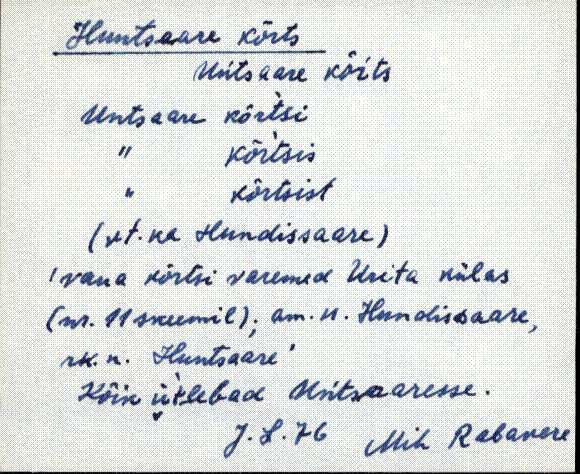 Huntsaare kõrts
Untsaare kõrts
Untsaare kõrtsi
" kõrtsis
" kõrtsist
(vt. ka Hundissaare)
'vana kõrtsi varemed Urita külas
(nr. 11 skeemil); am. n. Hundissaare,
rk. n. Huntsaare'
Kõik ütlebad Untsaaresse.
J. S. 76 Mih Rabavere